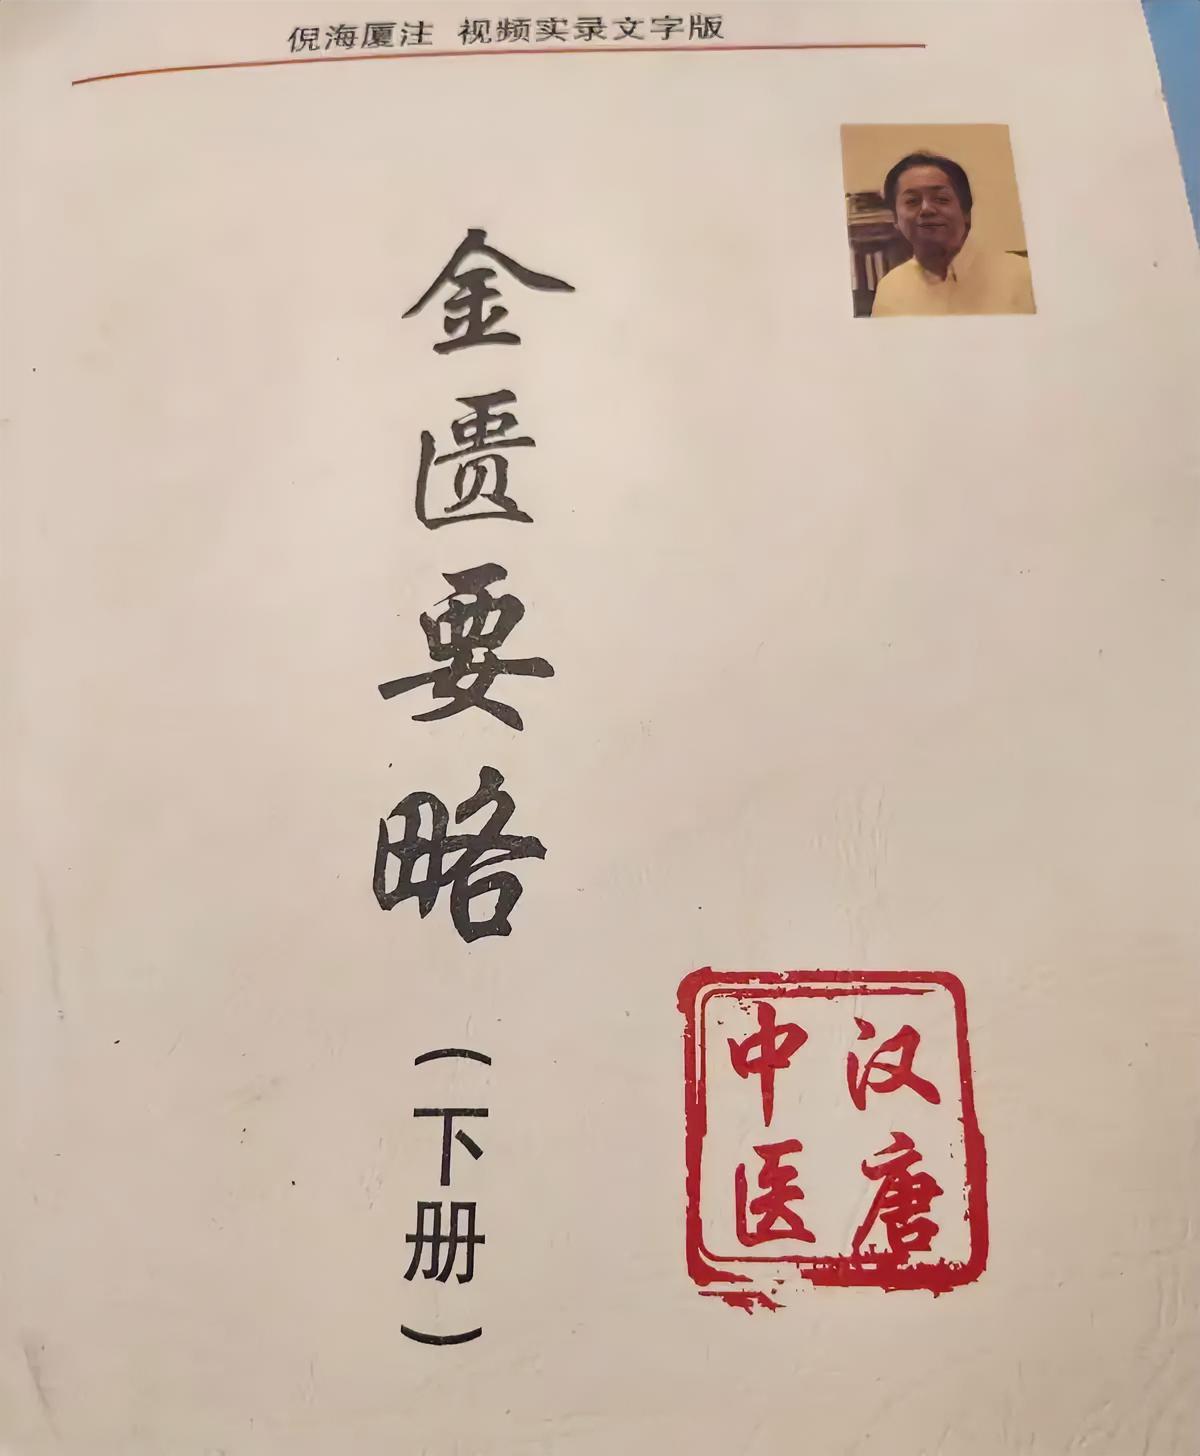 倪海厦注 视频实录文字版
金匮要略
（下册）
汉唐
中医